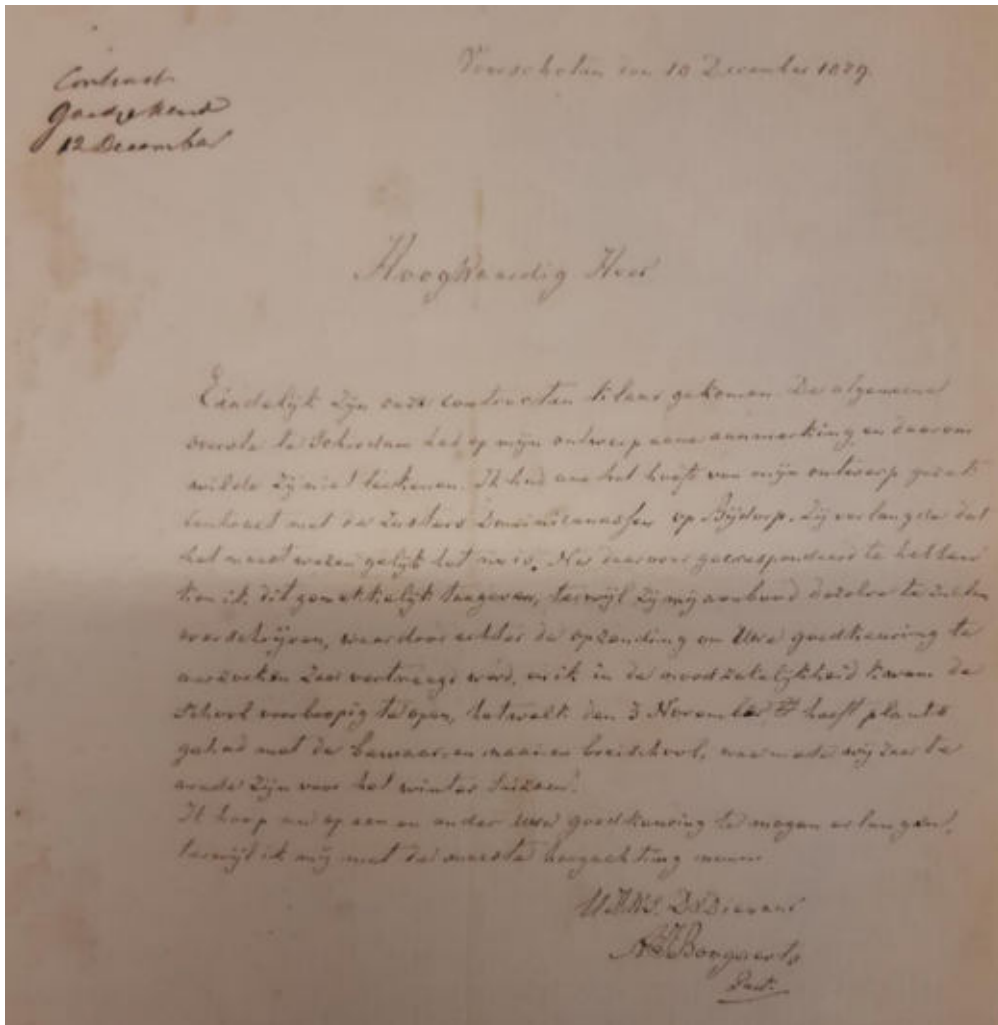 Contract
Goedgekeurd
12 December
Voorschoten den 10 December 1889.
Hoogwaardig Heer
Eindelijk zijn onze contracten klaar gekomen. De algemeene
overste te Schiedam had op mijn ontwerp eene aanmerking, en daarom
wilde zij niet teekenen. Ik had aan het hoofd van mijn ontwerp gezet:
Contract met de Zusters Dominicanessen op Bijdorp. Zij verlangde dat
het moest wezen gelijk het nu is. Na daarover gecorrespondeerd te hebben
kon ik dit gemakkelijk toegeven, terwijl zij mij aanbood dezelve te zullen
overschrijven, waardoor echter de opzending om Uwe goedkeuring te
verzoeken zeer vertraagd werd, en ik in de noodzakelijkheid kwam de
School voorloopig te open, hetwelk den 3 November heeft plaats
gehad met de bewaar- en naai en breischool, waarmede wij zeer te
vrede zijn voor het winter saizoen.
Ik hoop nu op een en ander Uwe goedkeuring te mogen erlangen,
terwijl ik mij met de meeste hoogachting noem
Dienaar
Bongaerts
Past.